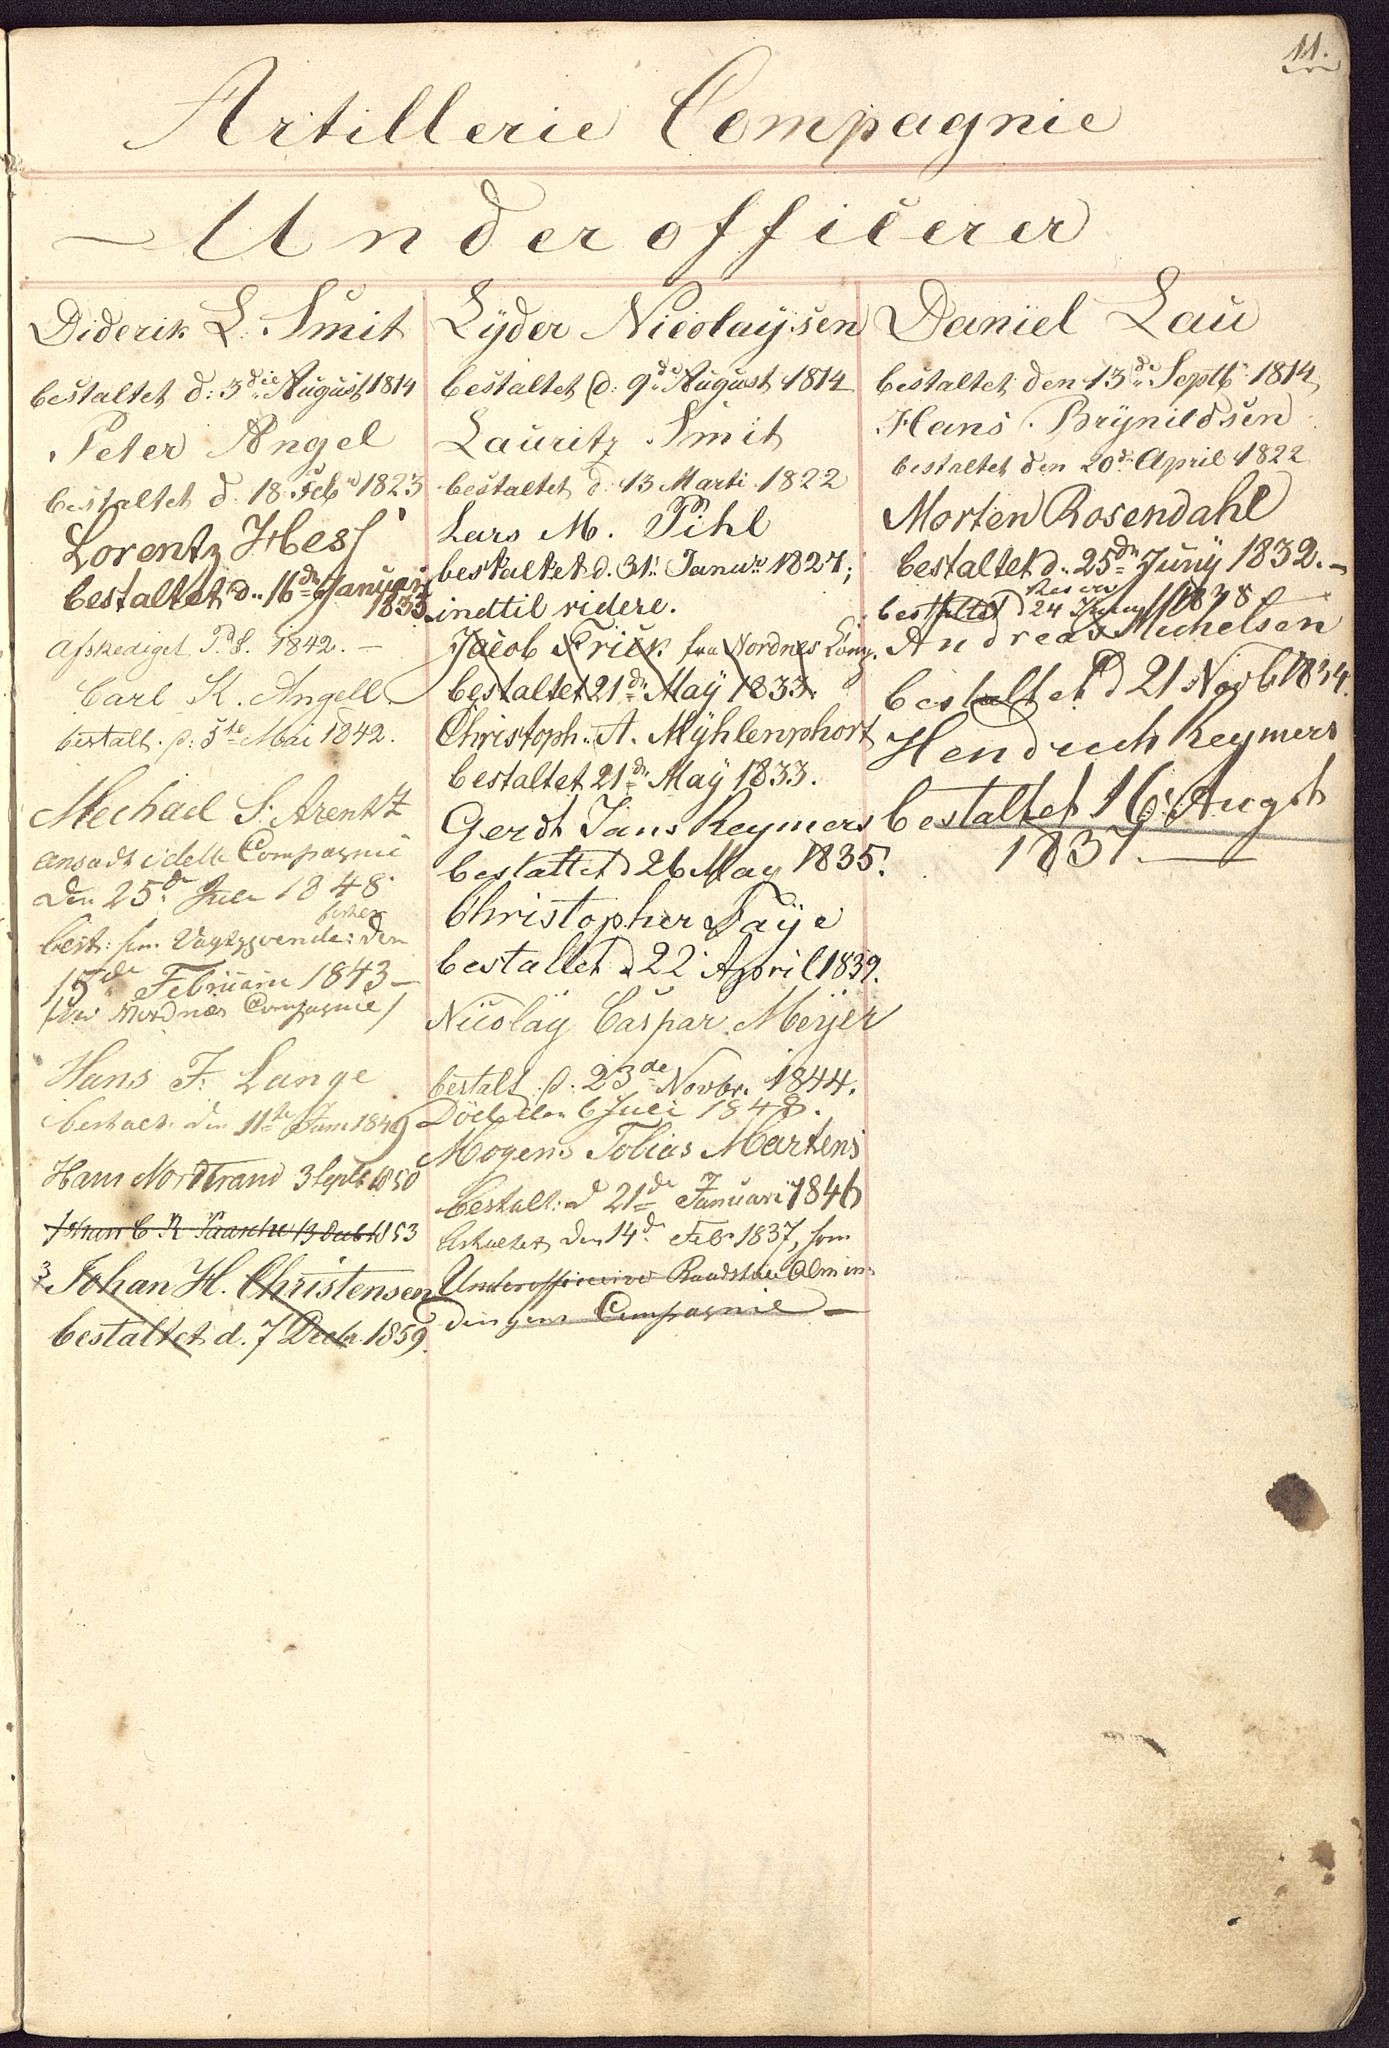 11.
Artillerie Compagnie
Underofficerer
Diderik L. Smit
bestaltet d: 3die August 1814
Peter Angel
bestaltet d. 18. Feb. 1823
Lorentz Hess
bestaltet d. 16de Januari
1833
afskediget P. S. 1842. –
Carl K. Angell
bestalt. p: 5te Mai 1842.
Michael S. Arentz
ansadt i dette Compagnie
den 25de Juli 1848
best: som Vagtgjørende: den
15de Februari 1843 –
ved Nordnæs Compagnie/
Hans F. Lange
bestalt. den 11te Juni 1849
Hans Nordtrand 3 Septb 1850
Johan C R Paasche 13 Decb 1853
Johan H. Christensen
bestaltet d. 7 Decbr. 1859.
Lyder Nicolaysen
bestaltet d. 9de August 1814
Lauritz Smit
bestaltet d. 13 Marti 1822
Lars M. Pihl
bestaltet d. 31te Janua. 1827;
indtil videre.
Jacob Frick fra Nordnes Comp.
bestaltet 21de May 1833.
Christoph. A. Mÿhlenphort
bestaltet 21de May 1833.
Gerdt Jans Reymers
bestaltet d 26 May 1835.
Christopher Faÿe
bestaltet d 22 April 1839.
Nicolaÿ Caspar Meÿer
bestalt. p. 23de Novbr. 1844.
Död den 6 Juli 1848.
Mogens Tobias Martens
bestalt: d 21de Januari 1846
bestaltet den 14de Febr 1837, som
Underofficeer ved Raadstue Almin-
dingens Compagnie –
Daniel Lau
bestaltet den 13de Septb. 1814
Hans Brÿnildsen
bestaltet den 20de April 1822
Morten Rosendahl
bestaltet d. 25de Juny 1832. –
bestaltet d 24 1838
Andreas Michelsen
bestaltet d 21 Novb 1834.
Hendrich Reymers
bestaltet 16. Augst
1837. –